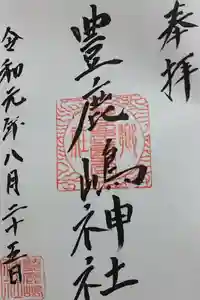 奉拝
豊鹿嶋神社
令和元年八月二十五日